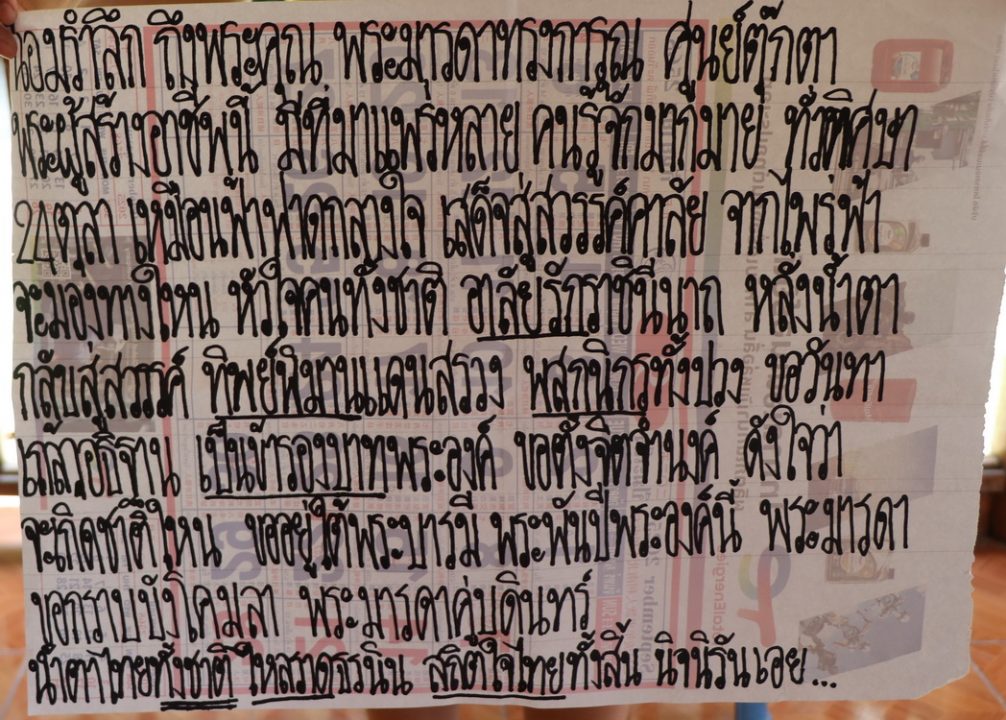 น้อมรำลึก ถึงพระคุณ พระมารดาทรงการุณ ศูนย์ตุ๊กตา
พระผู้สร้างอาชีพนี้ มีที่มาแพร่หลาย คนรู้จักมากมาย ทั่วทิศษา
24 ตุลา เหมือนฟ้าฟาดกลางใจ เสด็จสู่สวรรค์คาลัย จากไพร่ฟ้า
จะมองทางไหน หัวใจคนทั้งชาติ อาลัยรักราชินีนาถ หลั่งน้ำตา
กลับสู่สวรรค์ ทิพย์พิมานแดนสรวง พสกนิกรทั้งปวง ขอวันทา
แล้วอธิฐาน เป็นข้ารองบาทพระองค์ ขอตั้งจิตจำนงค์ ดังใจว่า
จะเกิดชาติไหน ขออยู่ใต้พระบารมี พระพันปีพระองค์นี้ พระมารดา
ขอกราบบังโคมลา พระมารดาคู่บดินทร์
น้ำตาไทยทั้งชาติ ไหลราดธรนิน สถิตใจไทยทั้งสิ้น นิจนิรันเอย...